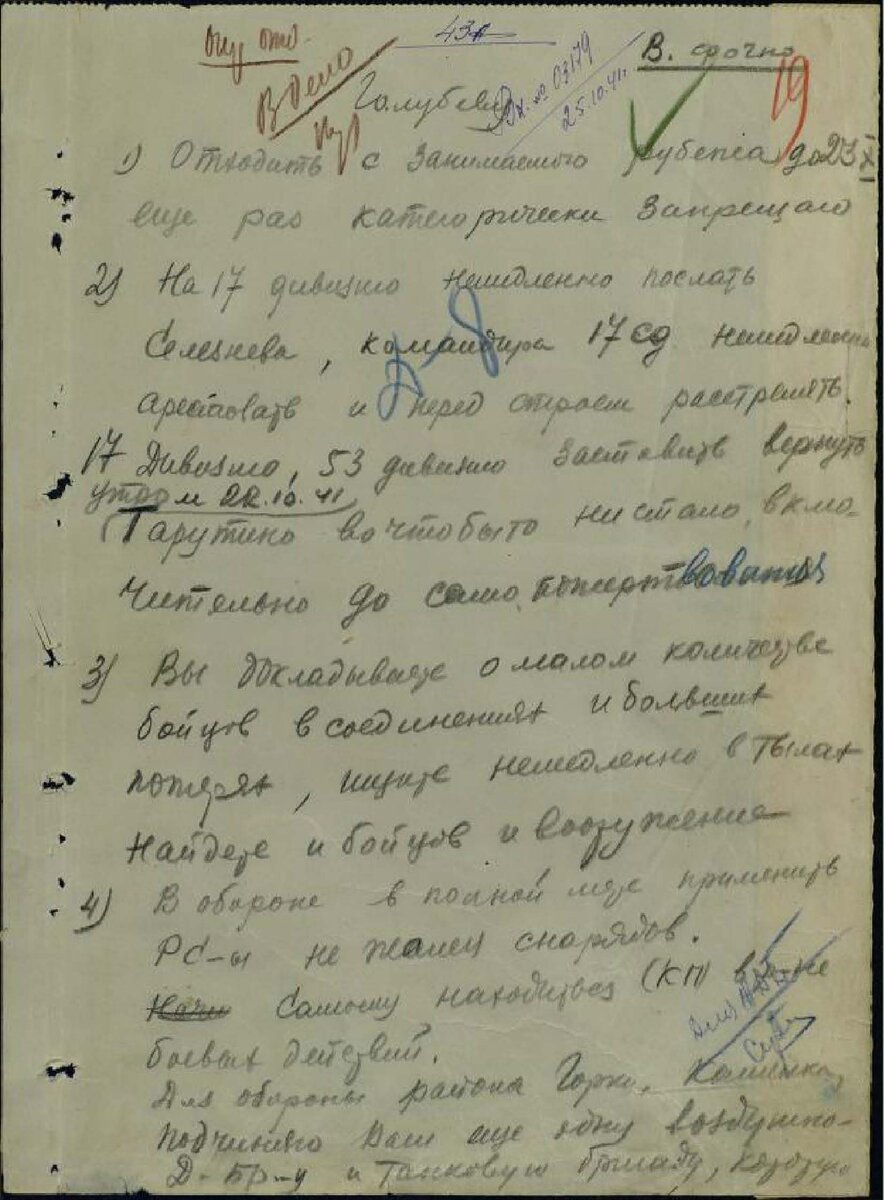 43А
В. срочно
В дело
Вх. № 03179
25.10.41г.
19
Голубеву
1) Отходить с занимаемого рубежа до 23.X
еще раз категорически запрещаю
2) На 17 дивизию немедленно послать
Селезнева, командира 17 сд немедленно
арестовать и перед строем расстрелять.
17 Дивизию, 53 дивизию заставить вернуть
утром 22.10.41
Тарутино во чтобы то ни стало, вклю-
чительно до самопожертвования
3) Вы докладываете о малом количестве
бойцов в соединениях и больших
потерях, ищите немедленно в тылах
найдете и бойцов и вооружение
4) В обороне в полной мере применить
РС-ы не жалея снарядов.
Самому находиться (КП) в р-не
боевых действий.
Для обороны района Горки, Каменка,
подчиняю Вам еще одну воздушно-
Д-Бр-у и танковую бригаду,